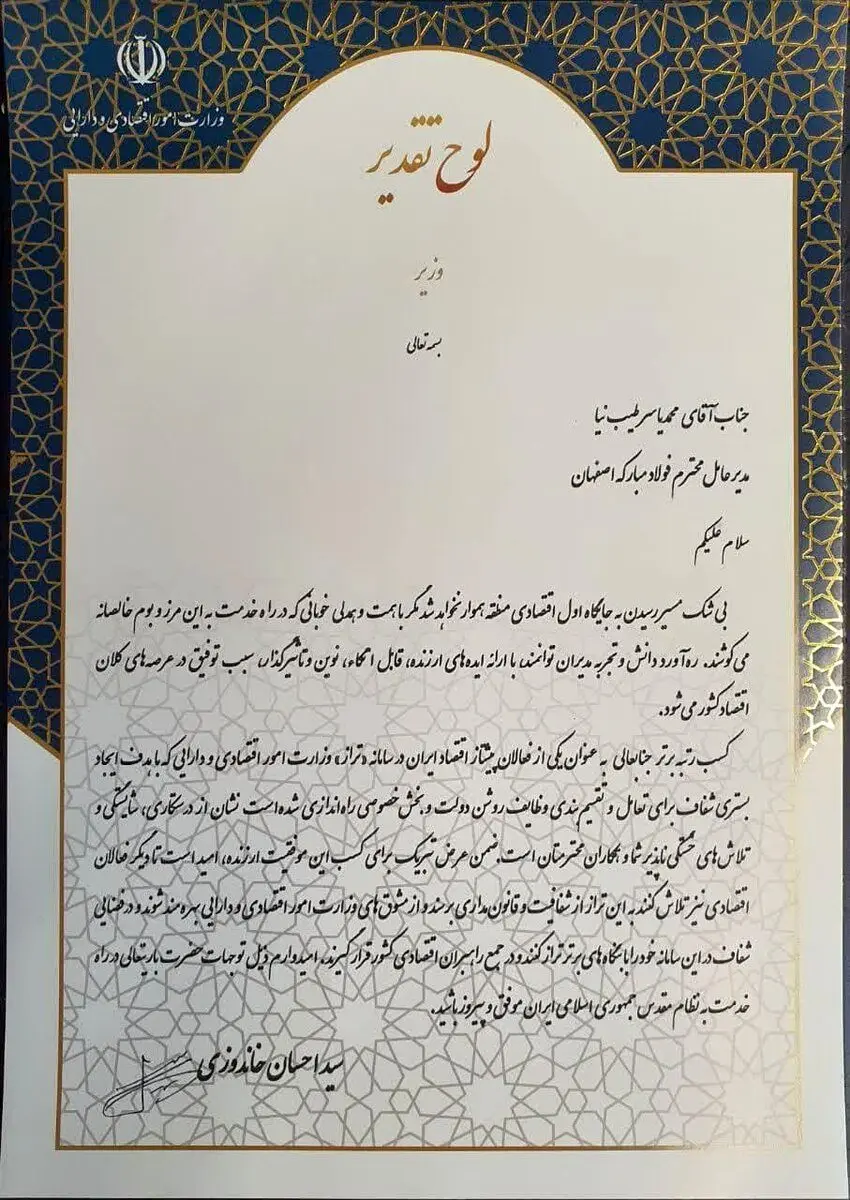 وزارت امور اقتصادی و دارایی
لوح تقدیر
وزیر
بسمه تعالی
جناب آقای محمدیاسر طیب نیا
مدیرعامل محترم فولاد مبارکه اصفهان
سلام علیکم
بی شک مسیر رسیدن به جایگاه اول اقتصادی منطقه هموار نخواهد شد مگر با همت و همدلی خوبانی که در راه خدمت به این مرز و بوم خالصانه
می کوشند. ره آورد دانش و تجربه مدیران توانمند، با ارائه ایده های ارزنده، قابل اتکاء، نوین و تأثیرگذار، سبب توفیق در عرصه های کلان
اقتصاد کشور می شود.
کسب رتبه برتر جنابعالی به عنوان یکی از فعالان پیشتاز اقتصاد ایران در سامانه «تراز» وزارت امور اقتصادی و دارایی که با هدف ایجاد
بستری شفاف برای تعامل و تقسیم بندی وظایف روشن دولت و بخش خصوصی راه اندازی شده است نشان از درستکاری، شایستگی و
تلاش های خستگی ناپذیر شما و همکاران محترمتان است. ضمن عرض تبریک برای کسب این موفقیت ارزنده، امید است تا دیگر فعالان
اقتصادی نیز تلاش کنند به این تراز از شفافیت و قانون مداری برسند و از مشوق های وزارت امور اقتصادی و دارایی بهره مند شوند و در فضایی
شفاف در این سامانه خود را با بنگاه های برتر تراز کنند و در جمع راهبران اقتصادی کشور قرار گیرند. امیدوارم ذیل توجهات حضرت باریتعالی در راه
خدمت به نظام مقدس جمهوری اسلامی ایران موفق و پیروز باشید.
سید احسان خاندوزی